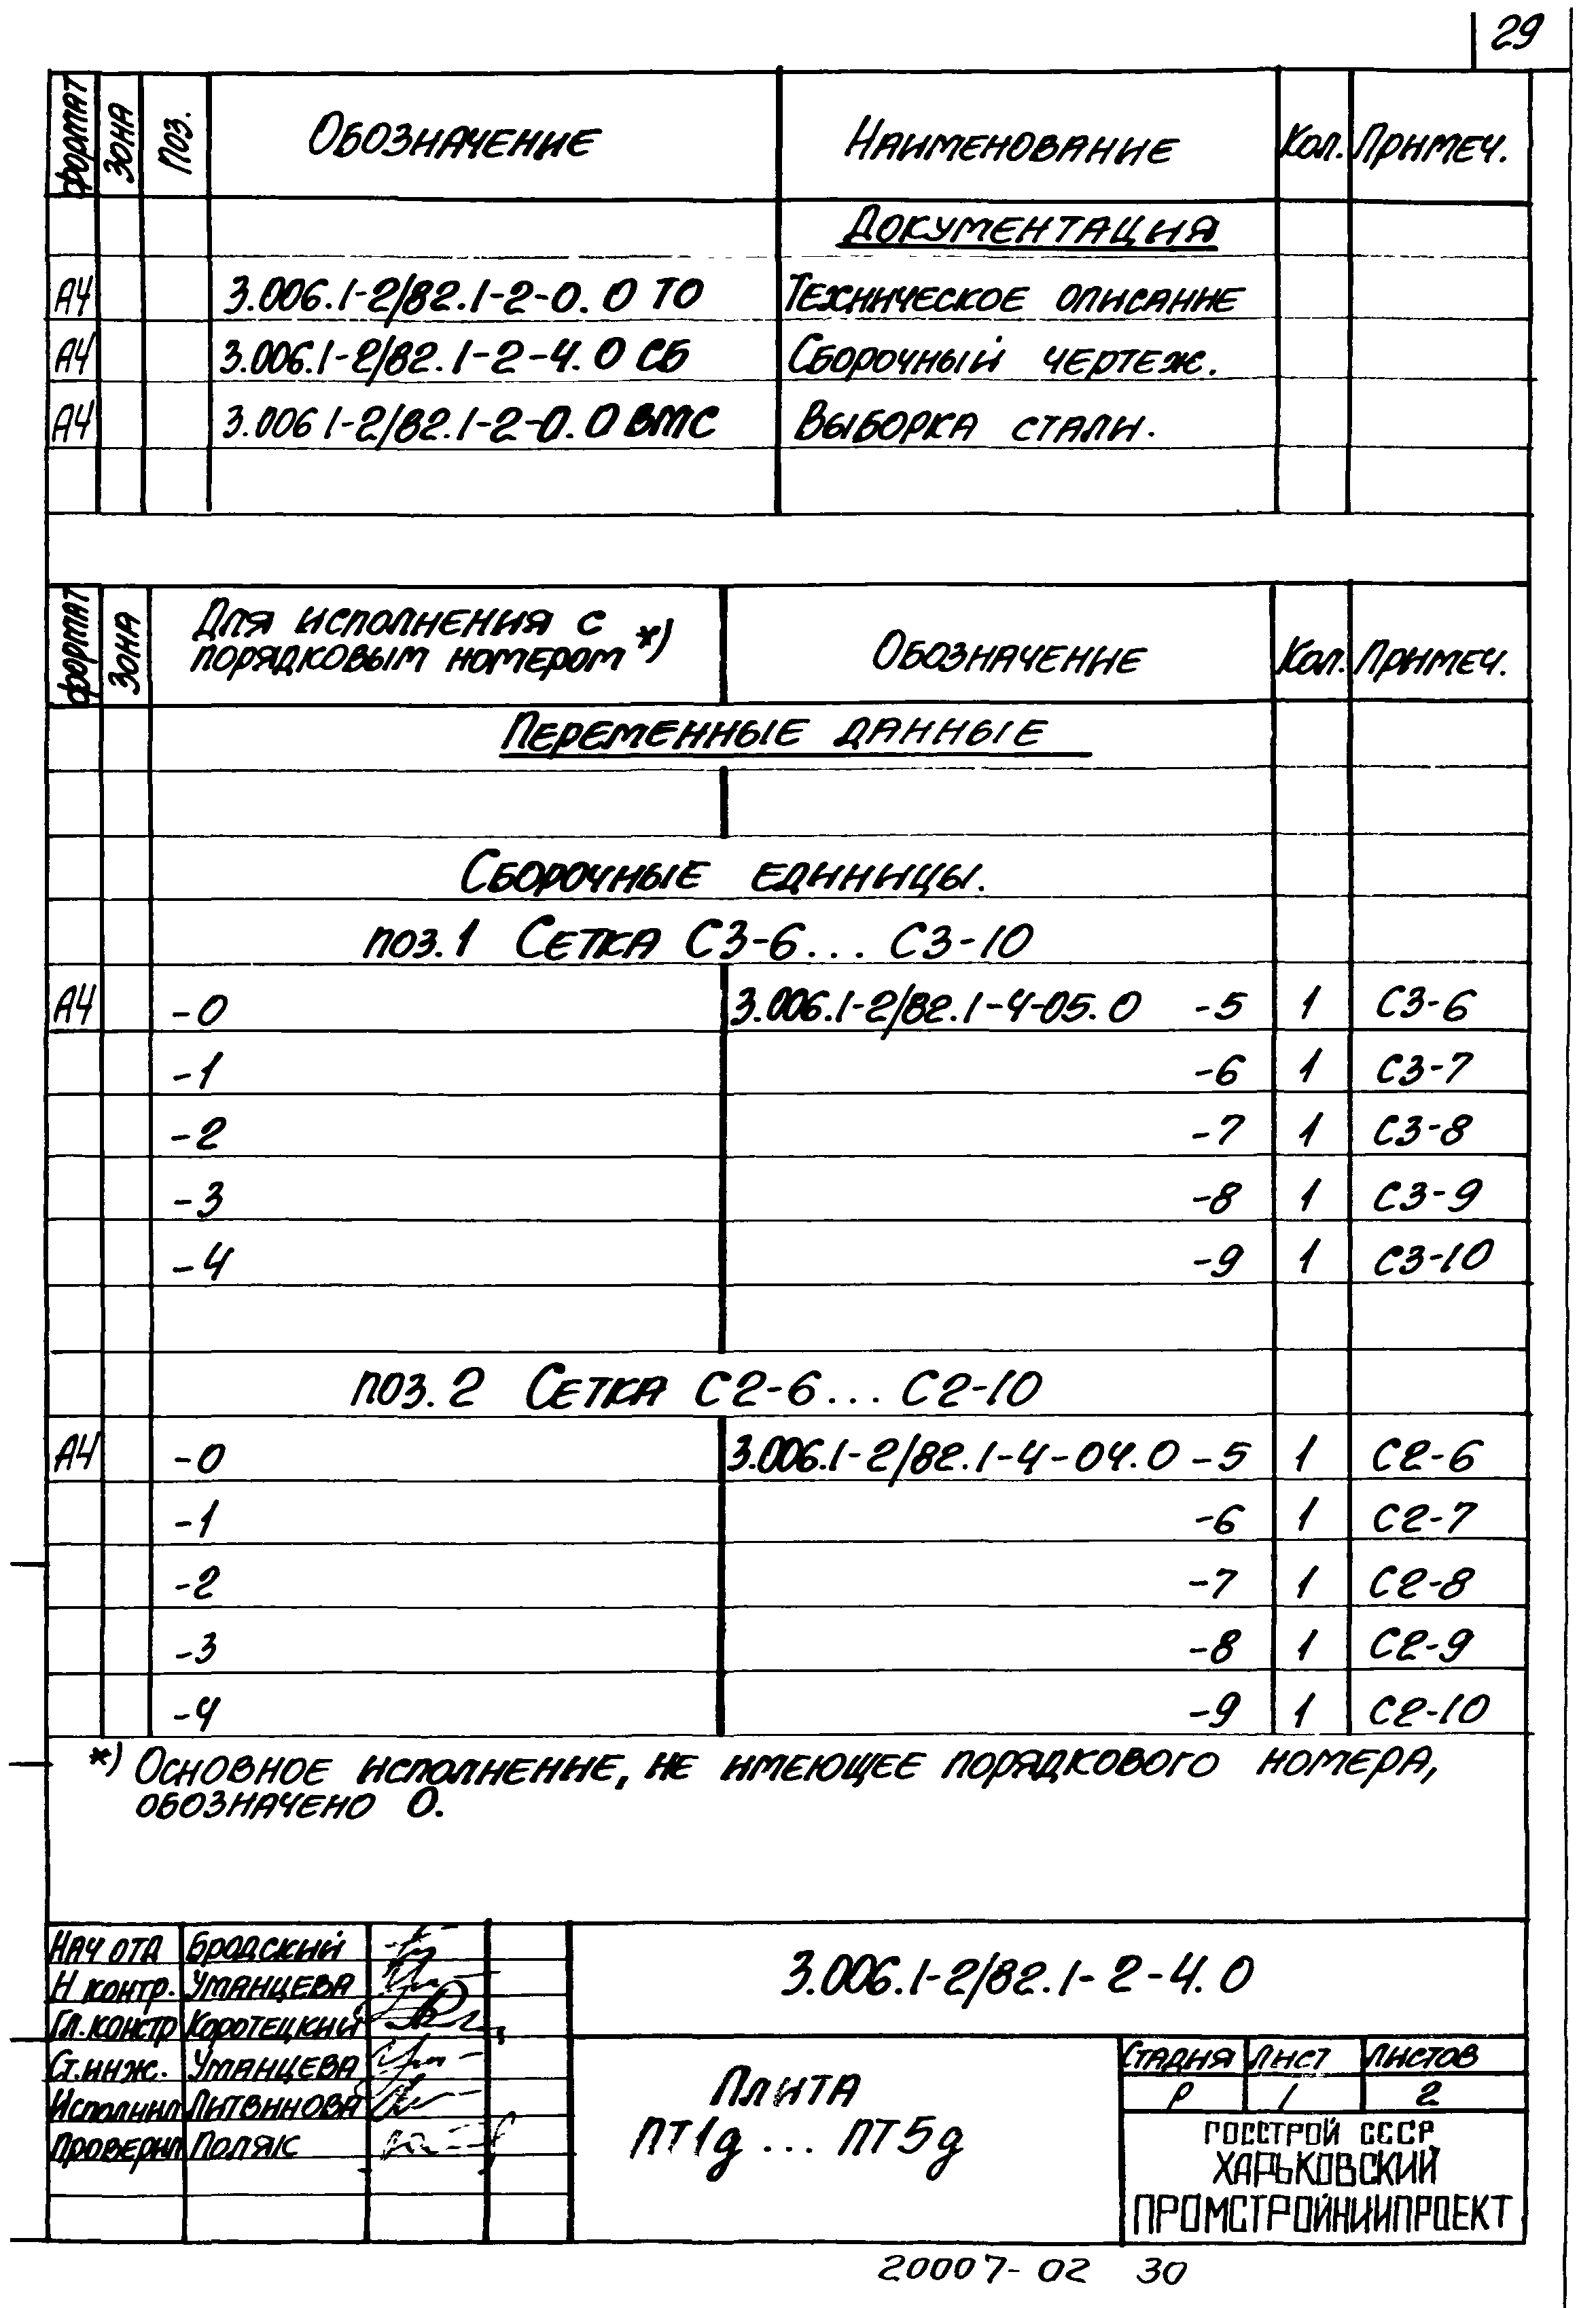 29
Формат Зона Поз. Обозначение Наименование Кол. Примеч.
Документация
А4 3.006.1-2/82.1-2-0.0 ТО Техническое описание
А4 3.006.1-2/82.1-2-4.0 СБ Сборочный чертеж.
А4 3.006 1-2/82.1-2-0.0 ВМС Выборка стали.
Формат Зона Для исполнения с порядковым номером *) Обозначение Кол. Примеч.
Переменные данные
Сборочные единицы.
поз.1 Сетка С3-6... С3-10
А4 -0 3.006.1-2/82.1-4-05.0 -5 1 С3-6
-1 -6 1 С3-7
-2 -7 1 С3-8
-3 -8 1 С3-9
-4 -9 1 С3-10
поз.2 Сетка С2-6... С2-10
А4 -0 3.006.1-2/82.1-4-04.0 -5 1 С2-6
-1 -6 1 С2-7
-2 -7 1 С2-8
-3 -8 1 С2-9
-4 -9 1 С2-10
*) Основное исполнение, не имеющее порядкового номера,
обозначено 0.
Нач отд Бродский
Н контр. Уманцева
Гл.констр Коротецкий
Ст.инж. Уманцева
Исполнил Литвинова
Проверил Поляк
3.006.1-2/82.1-2-4.0
Плита
ПТ1д ... ПТ5д
Стадия Лист Листов
Р 1 2
ГОССТРОЙ СССР
ХАРЬКОВСКИЙ
ПРОМСТРОЙНИИПРОЕКТ
20007-02 30